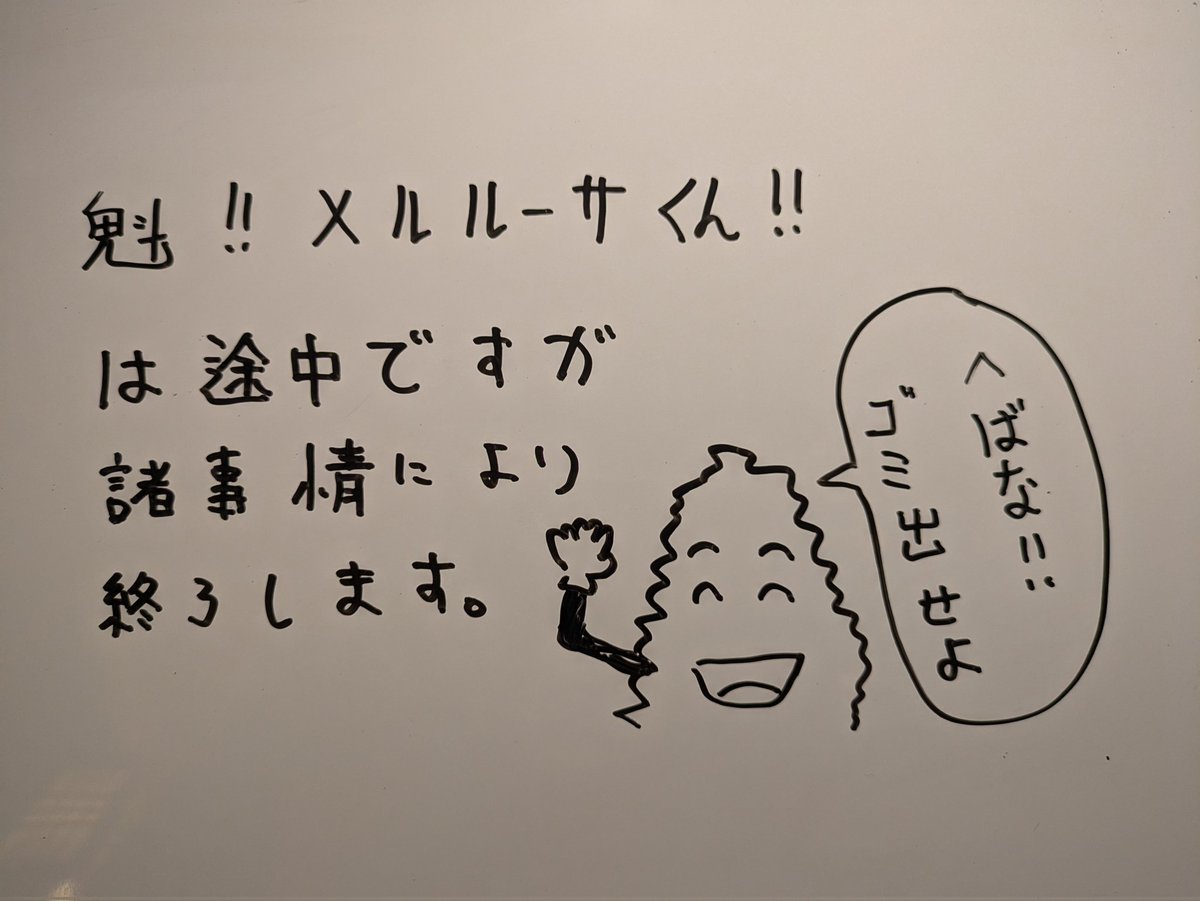 魁!!メルルーサくん!!
は途中ですが
諸事情により
終了します。
へばな!!
ゴミ出せよ